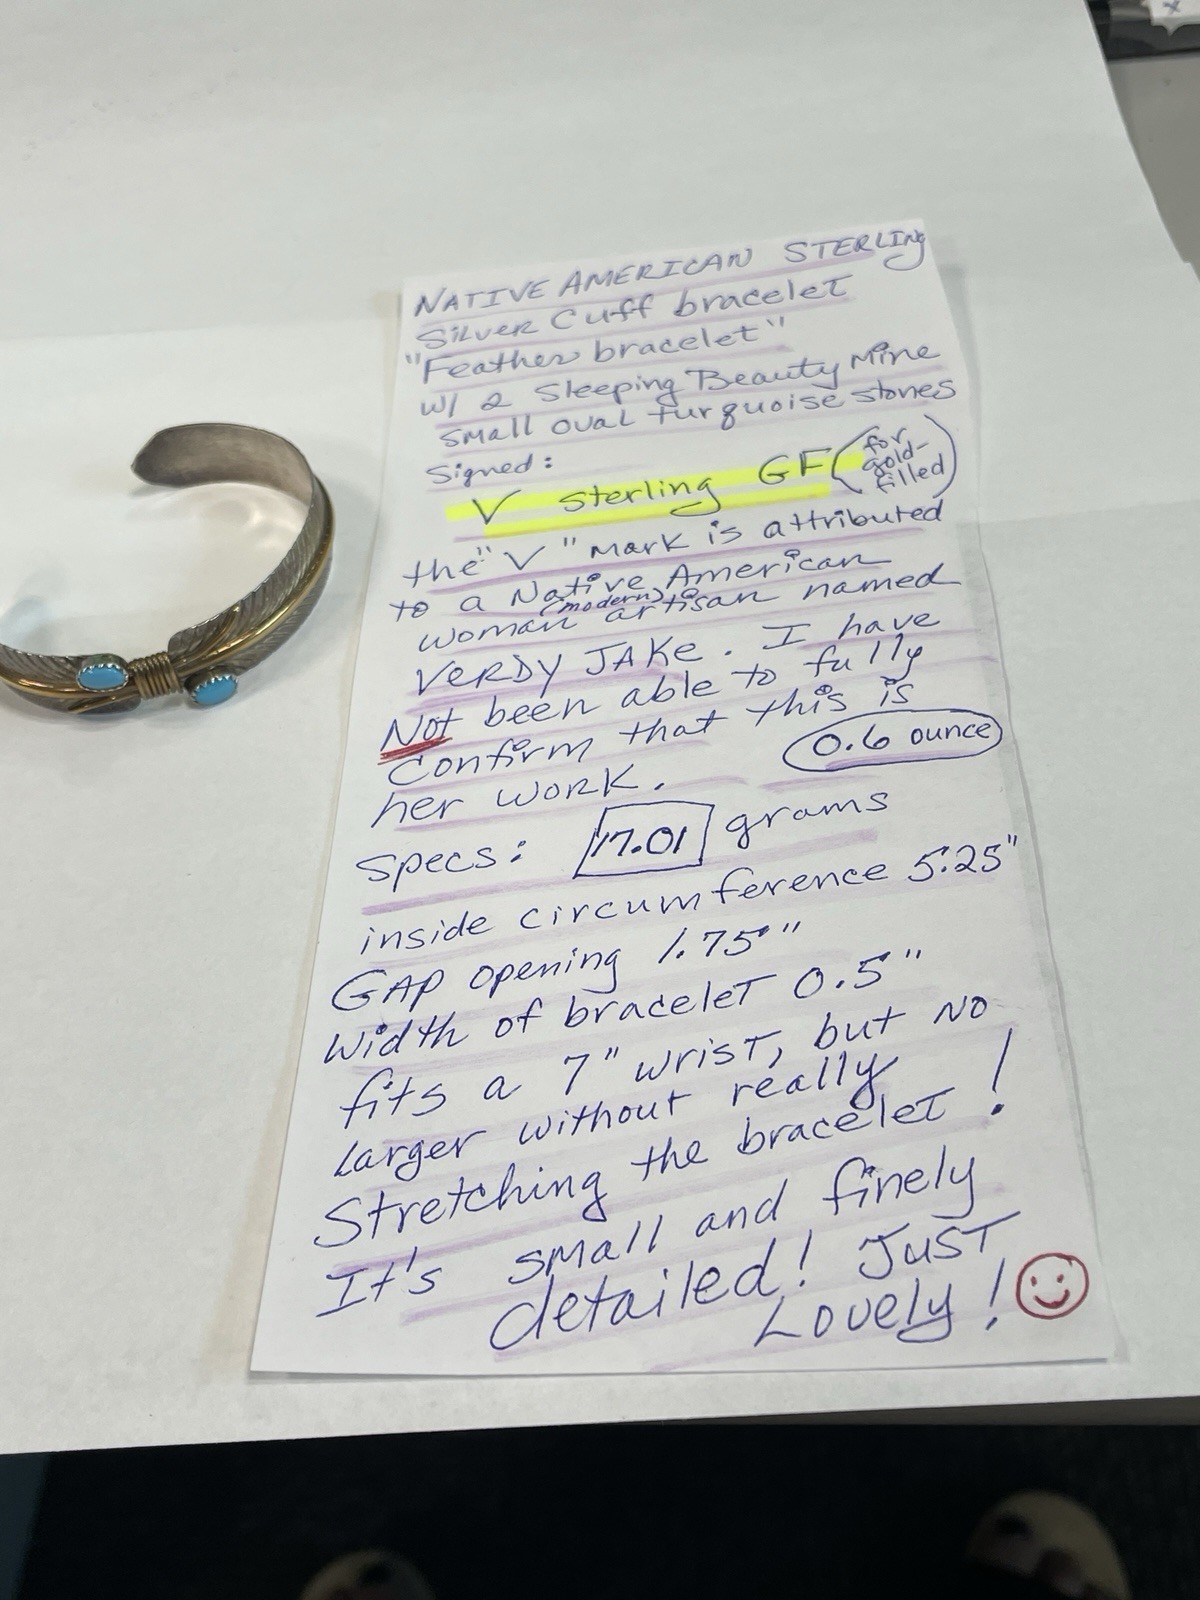 NATIVE AMERICAN STERLING
SILVER Cuff bracelet
"Feather bracelet"
w/ 2 Sleeping Beauty Mine
small oval turquoise stones
Signed:
V sterling GF (for gold-filled)
the "V" Mark is attributed
to a Native American
(modern)
woman artisan named
VERDY JAKE. I have
Not been able to fully
confirm that this is
her work.
0.6 ounce
Specs: 17.01 grams
inside circumference 5.25"
GAP opening 1.75"
Width of bracelet 0.5"
fits a 7" wrist, but no
larger without really
Stretching the bracelet!
It's small and finely
detailed! Just
Lovely!